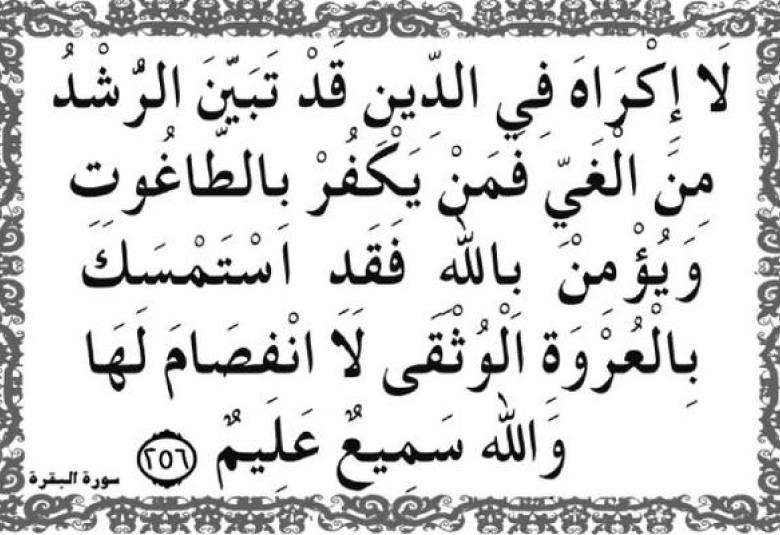 لَا إِكْرَاهَ فِي الدِّينِ قَدْ تَبَيَّنَ الرُّشْدُ
مِنَ الْغَيِّ فَمَنْ يَكْفُرْ بِالطَّاغُوتِ
وَيُؤْمِنْ بِاللَّهِ فَقَدِ اسْتَمْسَكَ
بِالْعُرْوَةِ الْوُثْقَى لَا انْفِصَامَ لَهَا
وَاللَّهُ سَمِيعٌ عَلِيمٌ ٢٥٦
سورة البقرة